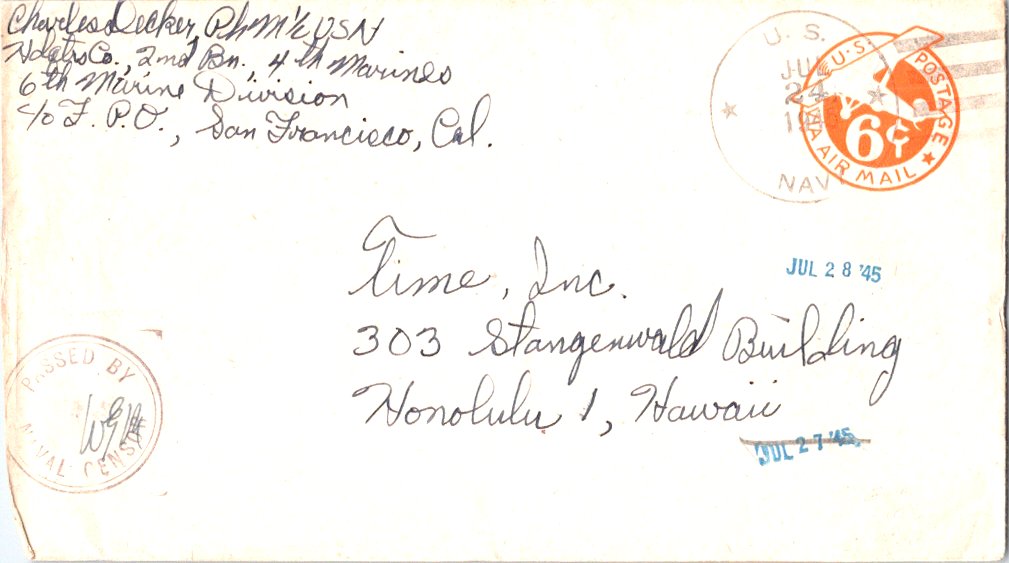 Charles Decker, PhM1/c USN
Hdqtrs Co., 2nd Bn., 4th Marines
6th Marine Division
c/o F. P. O., San Francisco, Cal.
U. S.
JUL
24
NAVY
U.S. POSTAGE
6¢
VIA AIR MAIL
JUL 28 '45
Time, Inc.
303 Stangenwald Building
Honolulu 1, Hawaii
JUL 27 '45
PASSED BY
NAVAL CENSOR